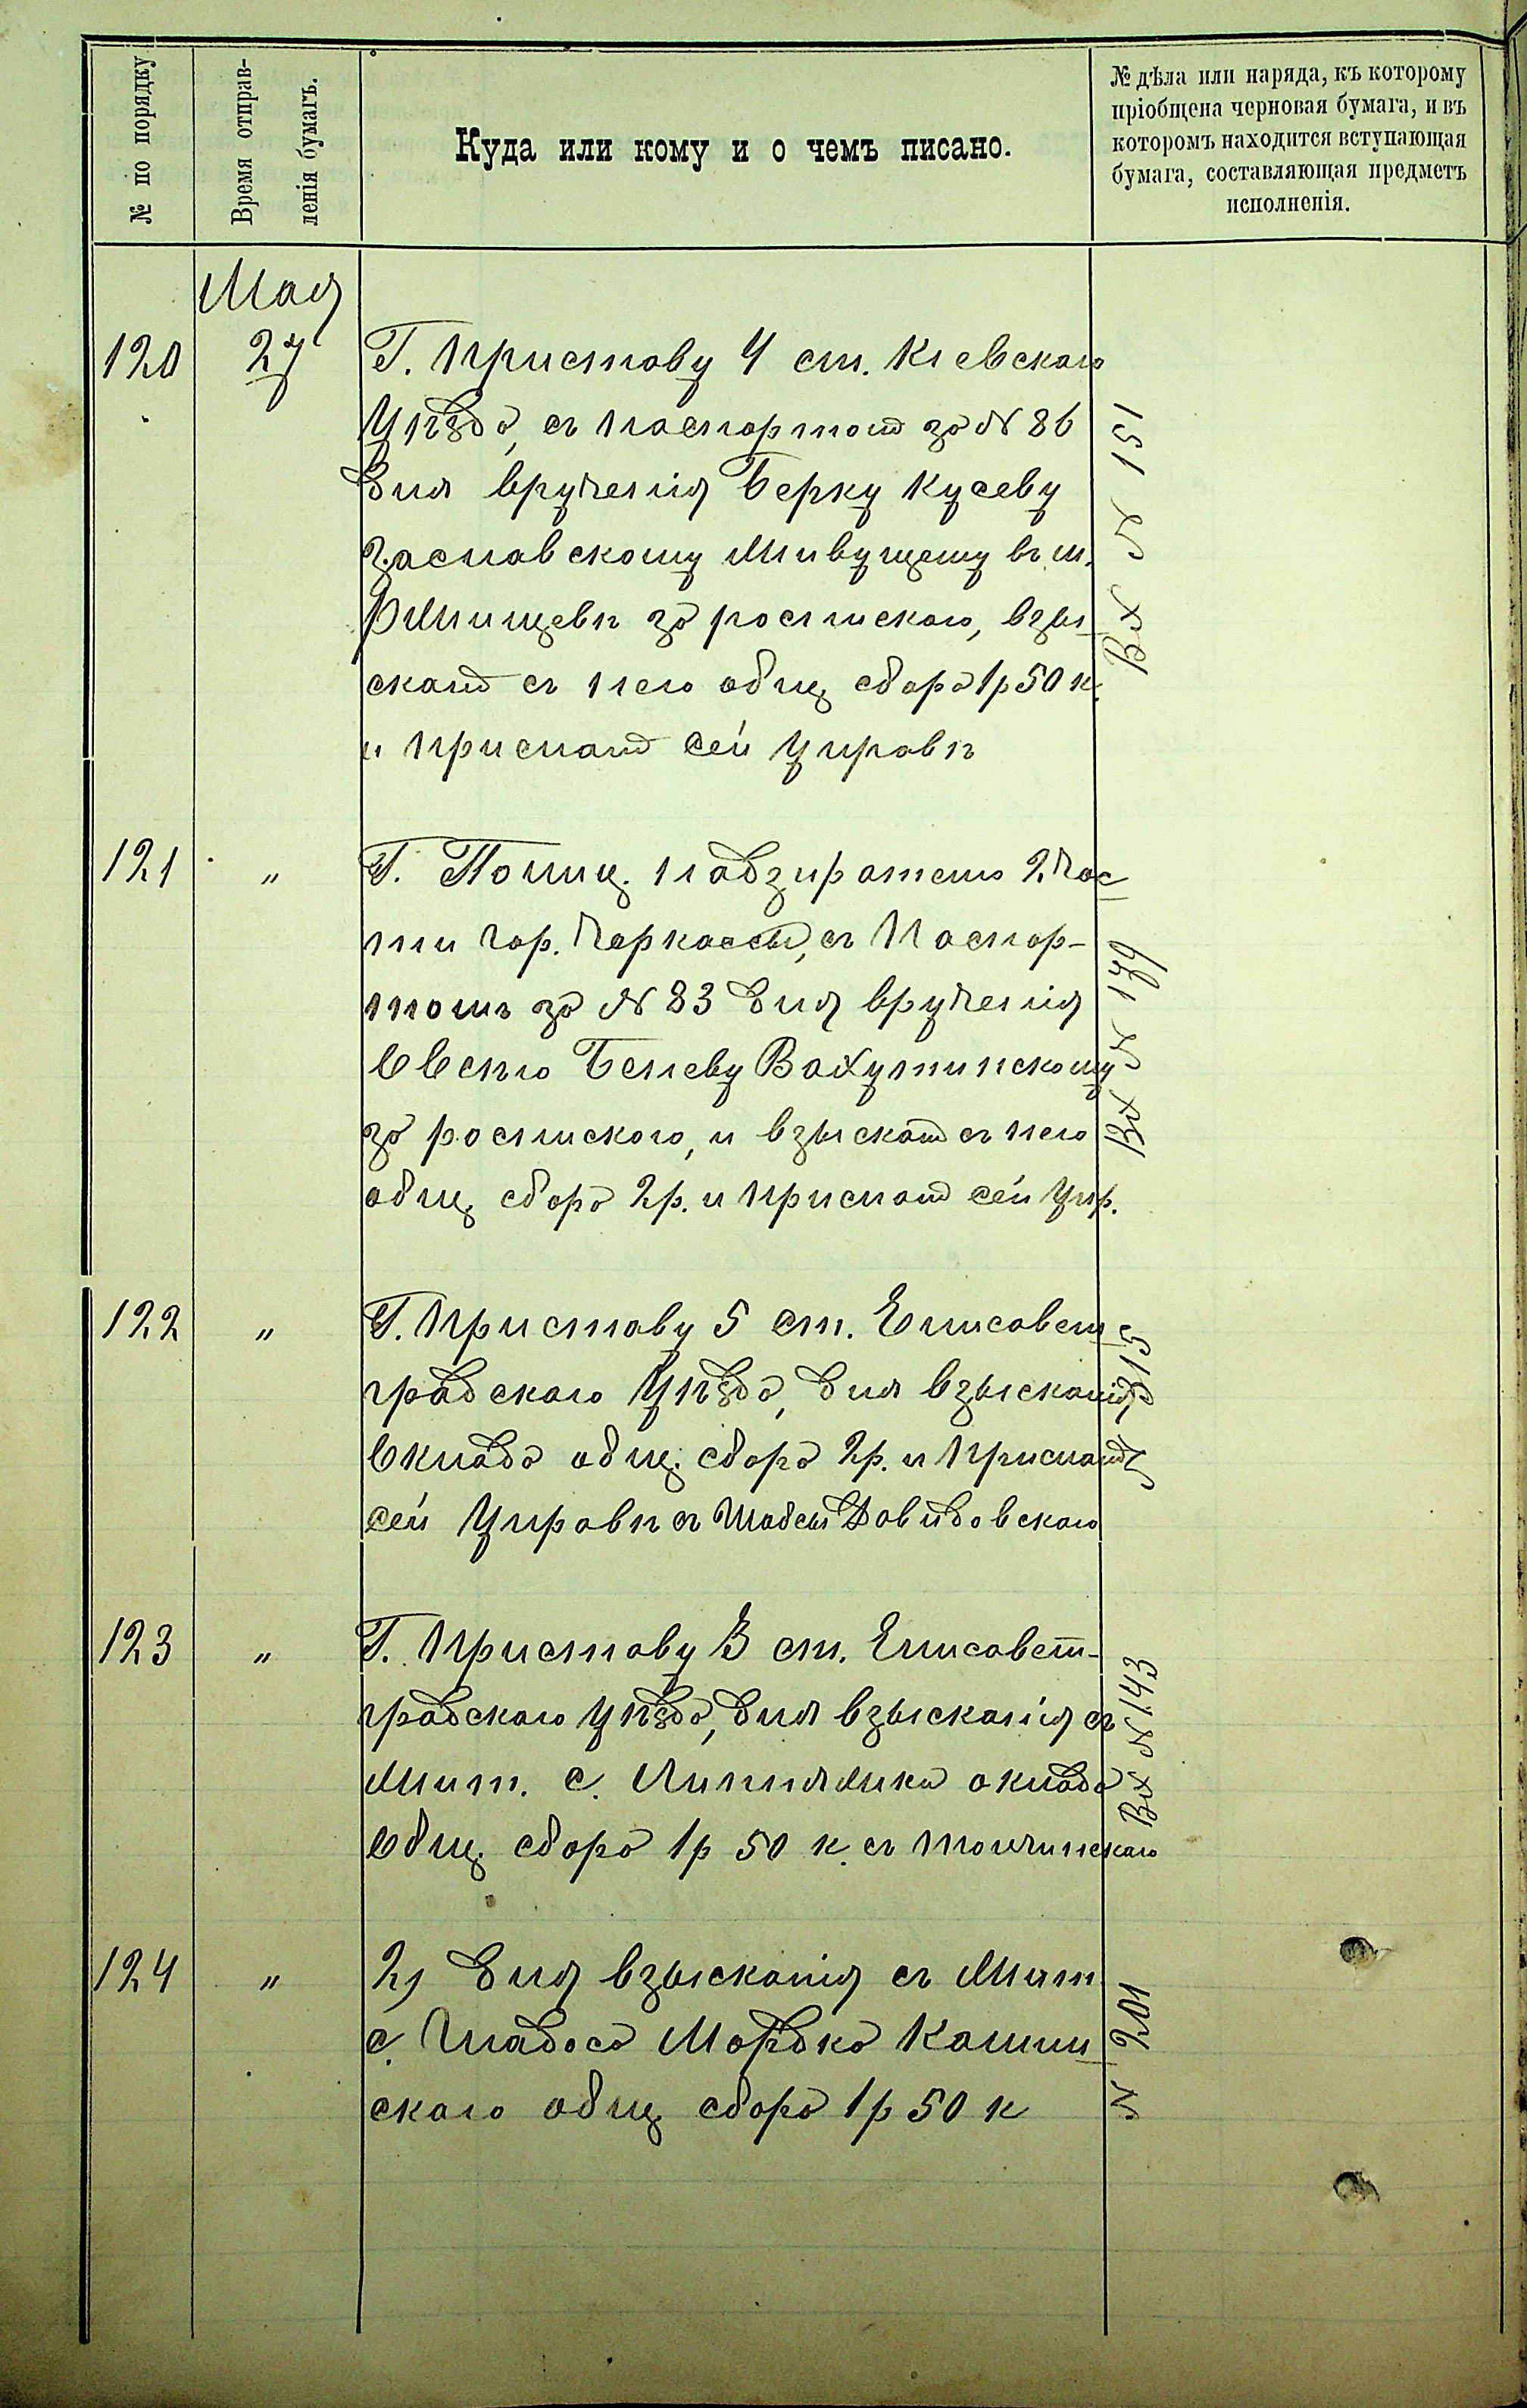 № по порядку
Время отправ-
ленія бумагъ.
Куда или кому и о чемъ писано.
№ дѣла или наряда, къ которому
пріобщена черновая бумага, и въ
которомъ находится вступающая
бумага, составляющая предметъ
исполненія.
Мая
120 27 Г. Приставу 4 ст. Кіевскаго
Уѣзда, съ паспортомъ за № 86
для врученія Берку Кусеву
Заславскому живущему въ м.
Ржищевѣ за роспискою, взы-
скать съ него общ. сбора 1 р 50 к.
и прислать сей Управѣ
Вх № 151
121 " Г. Полиц. надзирателю 2 час
ти гор. Черкассы, съ Паспор-
томъ за № 83 для врученія
Овсѣю Беневу Вахутинскому
за роспискою, и взыскать съ него
общ. сбора 2 р. и прислать сей Упр.
Вх № 179
122 " Г. Приставу 5 ст. Елисавет-
градскаго Уѣзда, для взысканія
оклада общ. сбора 2 р. и прислать
сей Управѣ съ Шабсы Давидовскаго
№ 215
123 " Г. Приставу 3 ст. Елисавет-
градскаго уѣзда, для взысканія съ
жит. с. Липняжки оклада
общ. сбора 1 р 50 к. съ
Вх № 143
124 " 2) Для взысканія съ жит
с. Мордка
скаго общ. сбора 1 р 50 к
№ 201